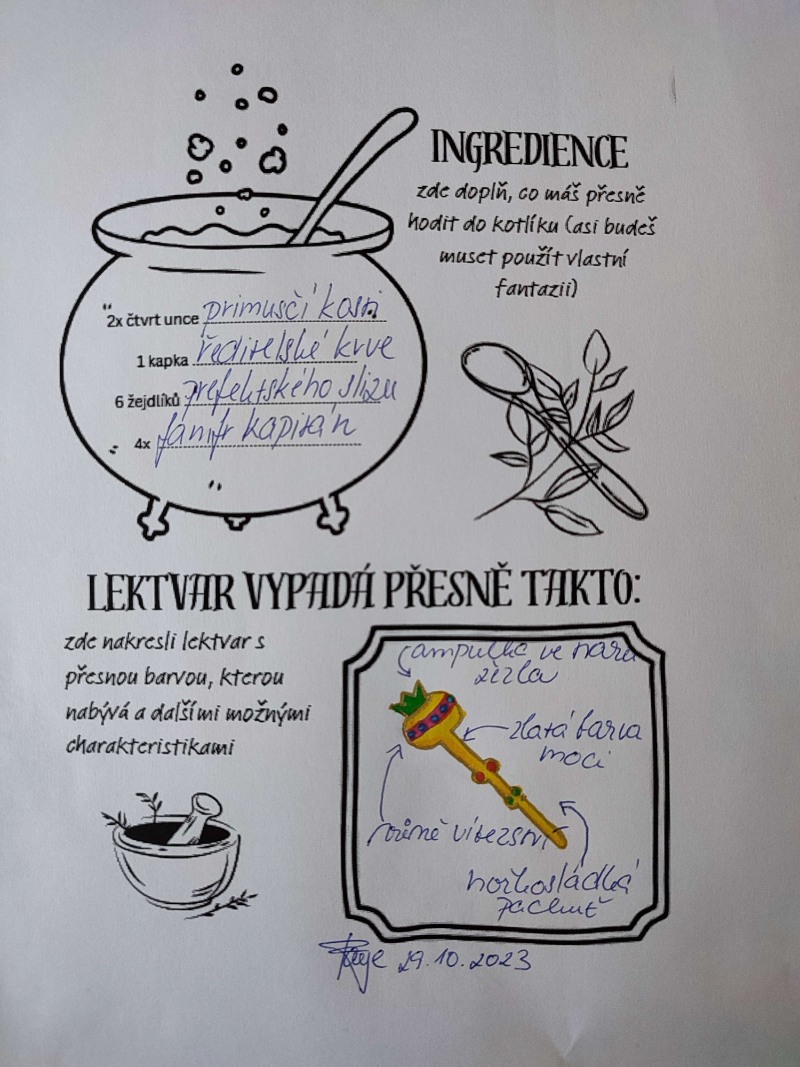 INGREDIENCE
zde doplň, co máš přesně
hodit do kotlíku (asi budeš
muset použít vlastní
fantazii)
2x čtvrt unce primusčí kosti
1 kapka ředitelské krve
6 žejdlíků prefektského slizu
4x famfr kapitán
LEKTVAR VYPADÁ PŘESNĚ TAKTO:
zde nakresli lektvar s
přesnou barvou, kterou
nabývá a dalšími možnými
charakteristikami
ampulka ve tvaru
žezla
zlatá barva
moci
vítezství
hořkosládká
pachuť
29.10.2023